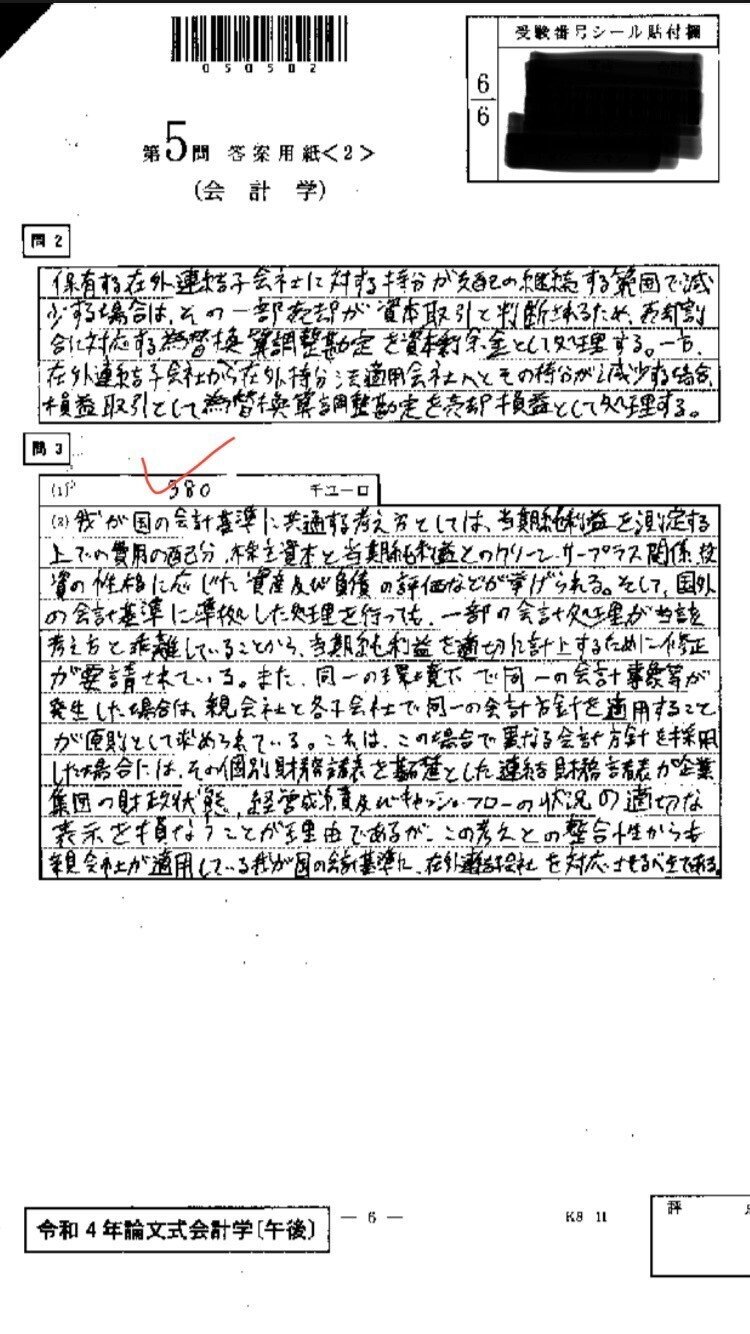 050502
受験番号シール貼付欄
6
6
第5問 答案用紙<2>
(会計学)
問2
保有する在外連結子会社に対する持分が支配の継続する範囲で減
少する場合は、その一部売却が資本取引と判断されるため、売却割
合に対応する為替換算調整勘定を資本剰余金として処理する。一方、
在外連結子会社から在外持分法適用会社へとその持分が減少する場合、
損益取引として為替換算調整勘定を売却損益として処理する。
問3
(1) 380 千ユーロ
(2) 我が国の会計基準に共通する考え方としては、当期純利益を測定する
上での費用の配分、株主資本と当期純利益とのクリーン・サープラス関係、投
資の性格に応じた資産及び負債の評価などが挙げられる。そして、国外
の会計基準に準拠した処理を行っても、一部の会計処理が当該
考え方と乖離していることから、当期純利益を適切に計上するために修正
が要請されている。また、同一の環境下で同一の会計事象等が
発生した場合は、親会社と各子会社で同一の会計方針を適用すること
が原則として求められている。これは、この場合で異なる会計方針を採用
した場合には、その個別財務諸表を基礎とした連結財務諸表が企業
集団の財政状態、経営成績及びキャッシュ・フローの状況の適切な
表示を損なうことが理由であるが、この考えとの整合性からも
親会社が適用している我が国の会計基準に、在外連結子会社を対応させるべきである。
令和4年論文式会計学〔午後〕
— 6 —
K8 11
評 点